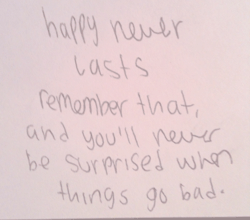 happy never
lasts
remember that,
and you'll never
be surprised when
things go bad.